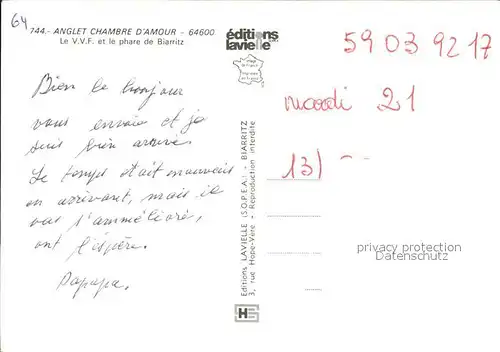 64
744.- ANGLET CHAMBRE D'AMOUR - 64600
Le V.V.F. et le phare de Biarritz
éditions
lavielle
Bien le bonjour
vous envoie et je
suis bien arrivé.
Le temps était mauvais
en arrivant, mais il
vas s'amméliorer,
ont l'espère.
Papapa.
59 03 92 17
mardi 21
13)
Editions LAVIELLE (S.O.P.E.A.) - BIARRITZ
3, rue Hobe-Vère - Reproduction interdite
privacy protection
Datenschutz